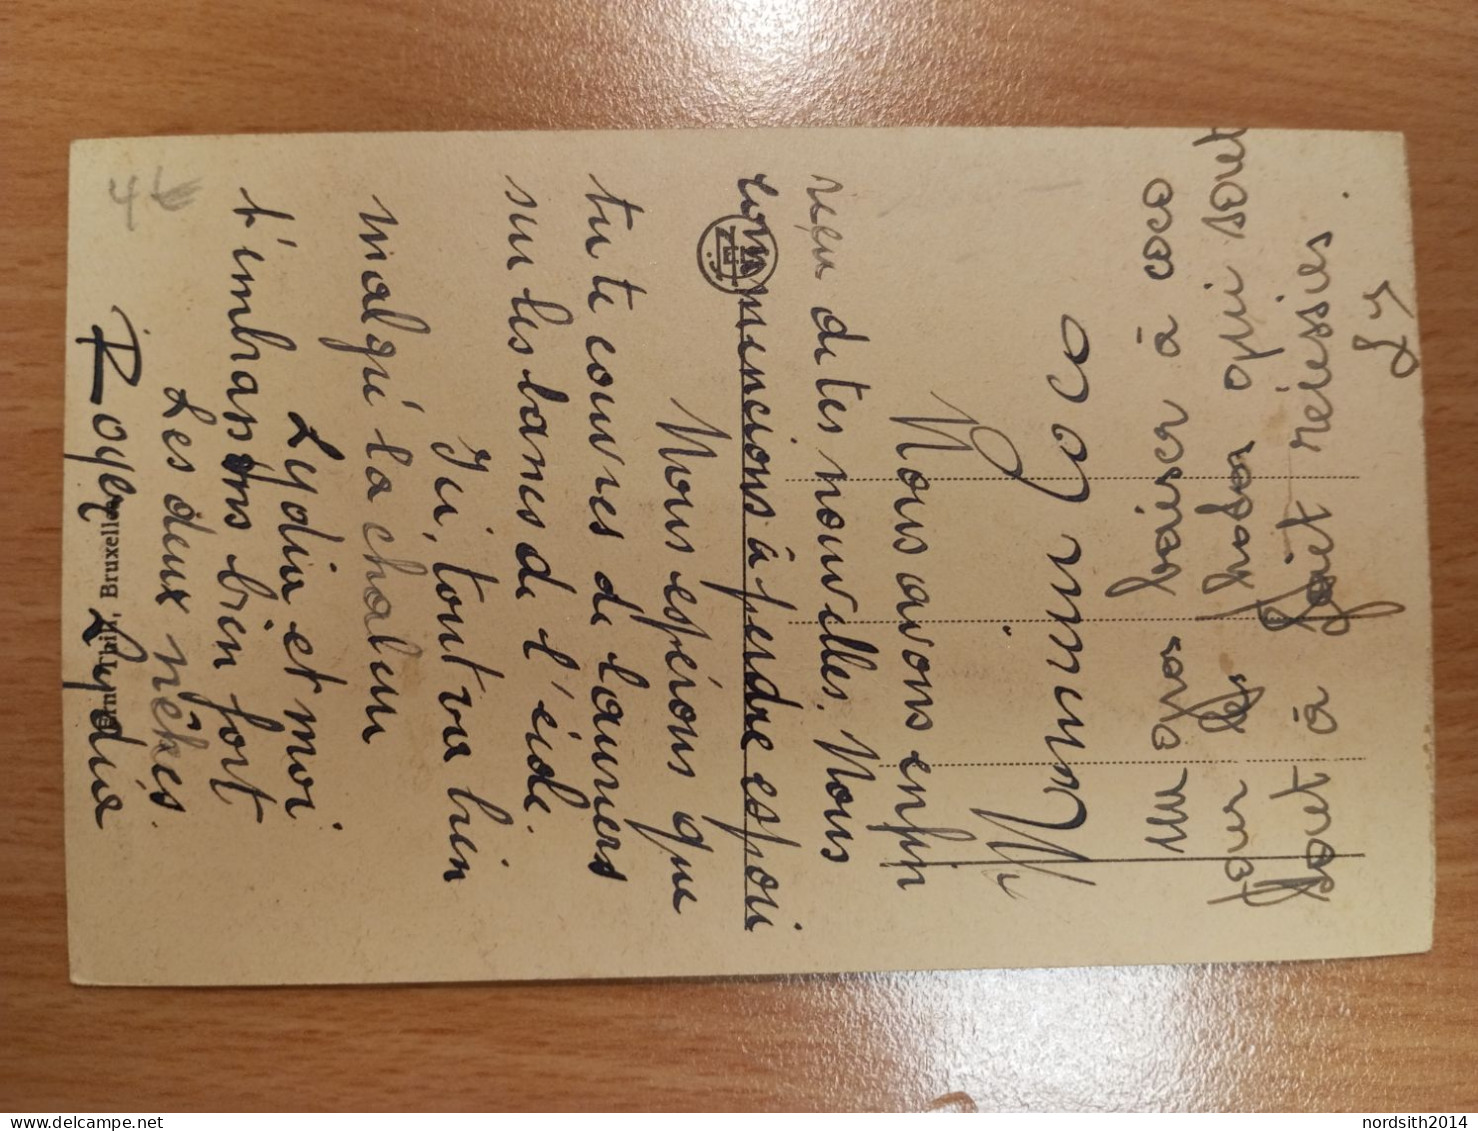 Coco
Nous avons enfin
reçu de tes nouvelles. Nous
commencions à perdre espoir
Nous espérons que
tu te couvres de lauriers
sur les bancs de l'école.
Ici, tout va bien
malgré la chaleur
Lydia et moi
t'embrassons bien fort
Les deux
Lydia
un gros baiser à coco
pour les qui sont
tout à fait réussies.
Ly
Thill, Bruxelles
4€
nordsith2014